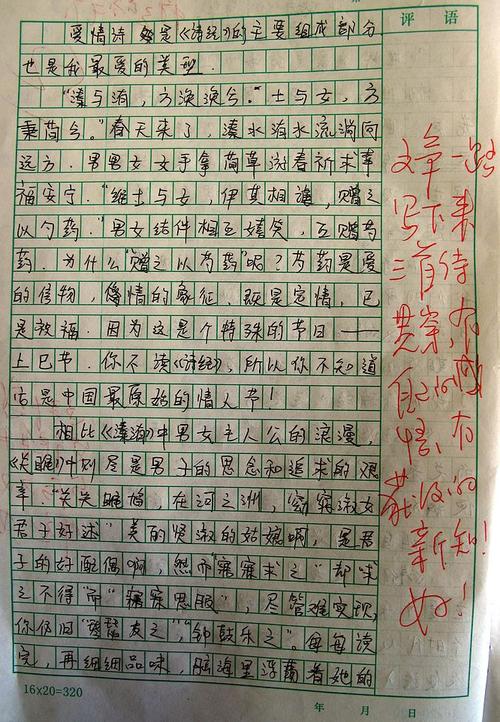 评 语
爱情诗 是《诗经》的主要组成部分
也是我最爱的类型.
"溱与洧,方涣涣兮."士与女,方
秉蕳兮."春天来了,溱水洧水流淌向
远方.男男女女手拿蕳草说着祈求幸
福安宁."维士与女,伊其相谑,赠之
以勺药."男女结伴相互嬉笑,互赠芍
药.为什么"赠之以芍药"呢?芍药是爱
的信物,情的象征,既是定情,已
是祝福.因为这是个特殊的节日——
上巳节.你不读《诗经》,所以你不知道
它是中国最原始的情人节!
相比《溱洧》中男女主人公的浪漫,
《关雎》中则尽是男子的思念和追求的艰
辛"关关雎鸠,在河之洲,窈窕淑女
君子好逑"美的贤淑的姑娘啊,是君
子的好配偶啊,然而"寤寐求之"却"求
之不得"而"寤寐思服",尽管难实现,
你仍旧"琴瑟友之","钟鼓乐之".每每读
完,再细细品味,脑海里浮荡着她的
16×20=320
年 月 日
文章一路
写下来
三首诗
贯穿,有
自己的
悟,有
新知!
好!